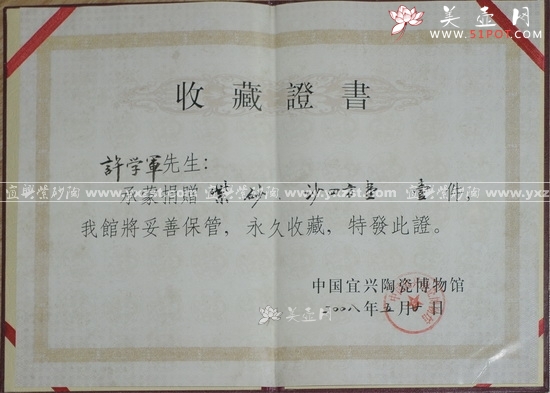 美壶网
www.51POT.com
收藏證書
許学軍先生:
承蒙捐贈 紫砂 沙四方壶 壹件,
我館將妥善保管,永久收藏,特發此證。
中国宜兴陶瓷博物馆
二00八年五月 日
宜興紫砂陶 www.yxz
美壶网